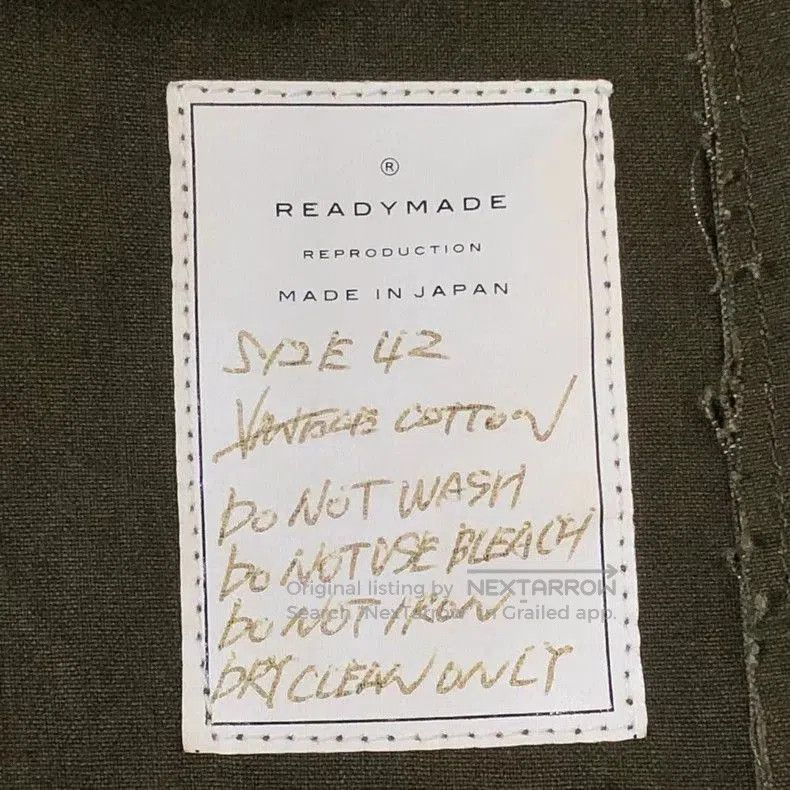 ®
READYMADE
REPRODUCTION
MADE IN JAPAN
SIZE 42
VINTAGE COTTON
DO NOT WASH
DO NOT USE BLEACH
DO NOT IRON
DRY CLEAN ONLY
Original listing by NEXTARROW
Search "NexTarrow" in Grailed app.